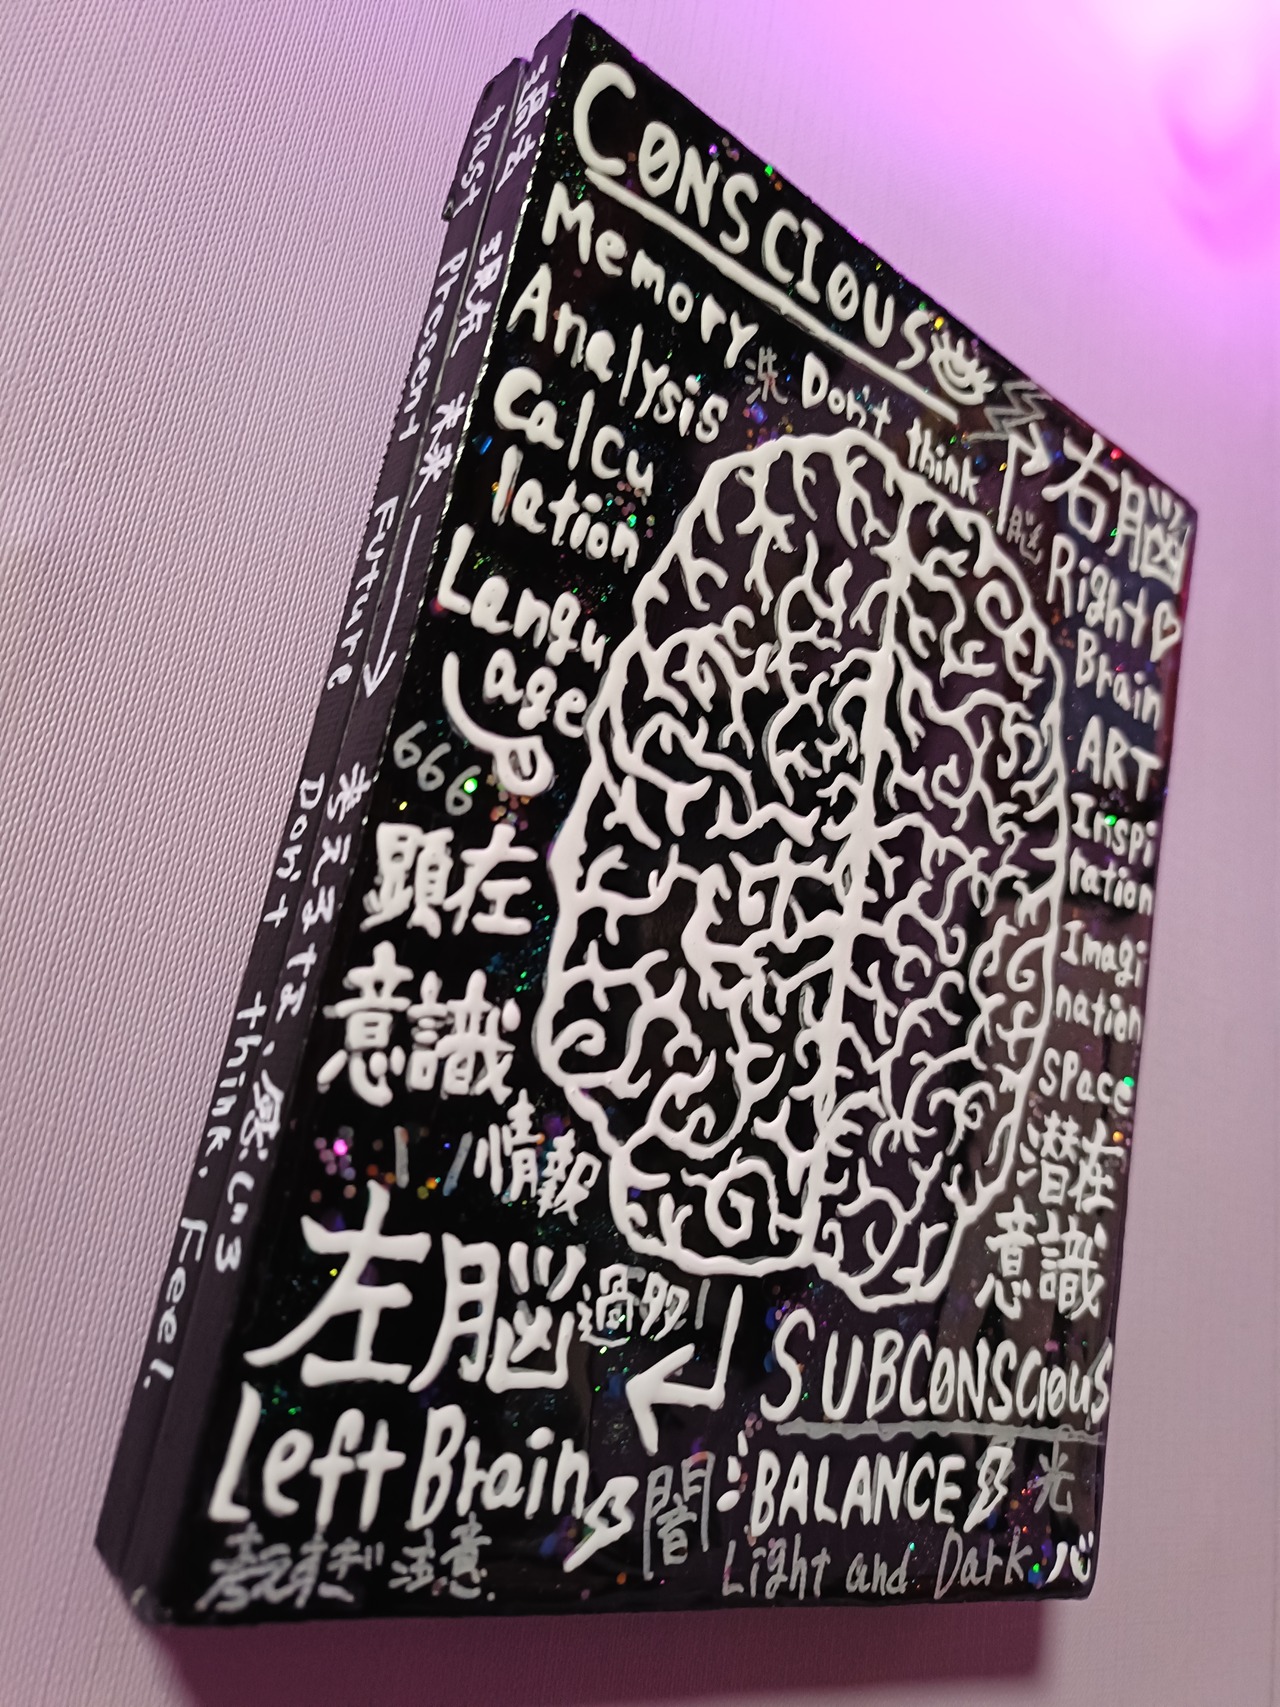 過去 現在 未来 → 考えるな、感じろ
Past Phresent Future Don't think. Feel.
CONSCIOUS
Memory
Analysis
Calcu
lation
Langu
age
666
顕在
意識
情報
左脳
Left Brain
考えすぎ 注意
洗
Don't think
脳
右脳
Right
Brain
ART
Inspi
ration
Imagi
nation
space
潜在
意識
過多
SUBCONSCIOUS
闇
BALANCE
光
Light and Dark